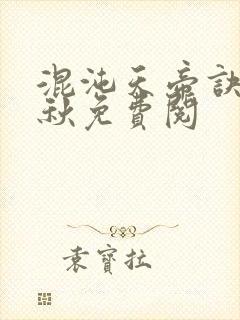 混沌天帝訣
秋免費閱
袁寶拉